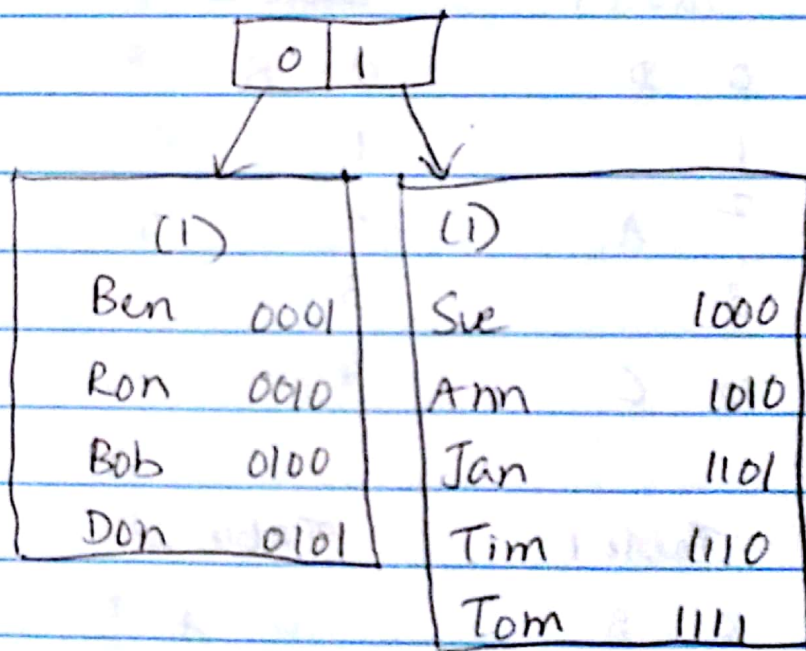 0 1
(1)
Ben 0001
Ron 0010
Bob 0100
Don 0101
(1)
Sue 1000
Ann 1010
Jan 1101
Tim 1110
Tom 1111